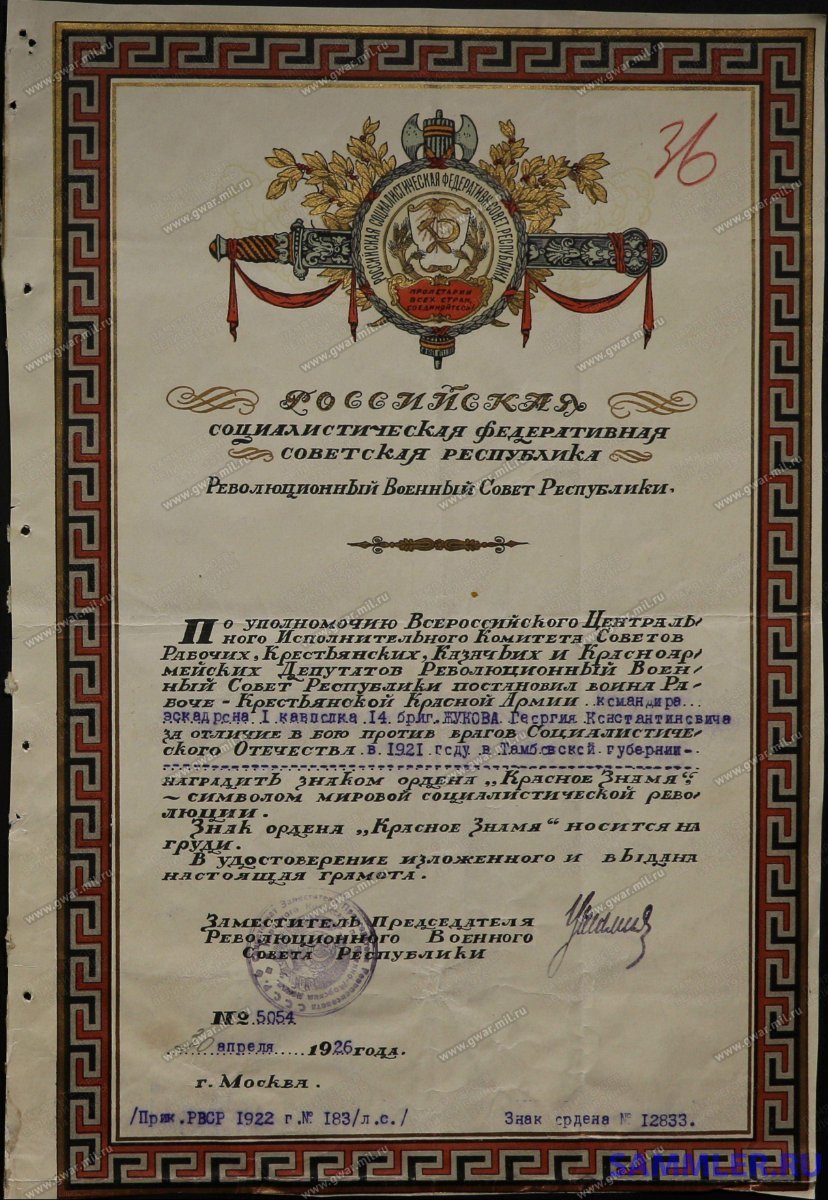 36
РОССИЙСКАЯ СОЦИАЛИСТИЧЕСКАЯ ФЕДЕРАТИВН. СОВЕТ. РЕСПУБЛИКА
ПРОЛЕТАРИИ
ВСЕХ СТРАН,
СОЕДИНЯЙТЕСЬ!
РОССИЙСКАЯ
СОЦИАЛИСТИЧЕСКАЯ ФЕДЕРАТИВНАЯ
СОВЕТСКАЯ РЕСПУБЛИКА
РЕВОЛЮЦИОННЫЙ ВОЕННЫЙ СОВЕТ РЕСПУБЛИКИ.
ПО УПОЛНОМОЧИЮ ВСЕРОССИЙСКОГО ЦЕНТРАЛЬ-
НОГО ИСПОЛНИТЕЛЬНОГО КОМИТЕТА СОВЕТОВ
РАБОЧИХ, КРЕСТЬЯНСКИХ, КАЗАЧЬИХ И КРАСНОАР-
МЕЙСКИХ ДЕПУТАТОВ РЕВОЛЮЦИОННЫЙ ВОЕН-
НЫЙ СОВЕТ РЕСПУБЛИКИ ПОСТАНОВИЛ ВОИНА РА-
БОЧЕ-КРЕСТЬЯНСКОЙ КРАСНОЙ АРМИИ командира
эскадрона I кавполка 14 бриг. ЖУКОВА Георгия Константиновича
ЗА ОТЛИЧИЕ В БОЮ ПРОТИВ ВРАГОВ СОЦИАЛИСТИЧЕ-
СКОГО ОТЕЧЕСТВА в 1921 году в Тамбовской губернии-
НАГРАДИТЬ ЗНАКОМ ОРДЕНА „КРАСНОЕ ЗНАМЯ"
- СИМВОЛОМ МИРОВОЙ СОЦИАЛИСТИЧЕСКОЙ РЕВО-
ЛЮЦИИ.
ЗНАК ОРДЕНА „КРАСНОЕ ЗНАМЯ" НОСИТСЯ НА
ГРУДИ.
В УДОСТОВЕРЕНИЕ ИЗЛОЖЕННОГО И ВЫДАНА
НАСТОЯЩАЯ ГРАМОТА.
ЗАМЕСТИТЕЛЬ ПРЕДСЕДАТЕЛЯ
РЕВОЛЮЦИОННОГО ВОЕННОГО
СОВЕТА РЕСПУБЛИКИ
№ 5054
апреля 1926 ГОДА.
Г. МОСКВА.
/Прик.РВСР 1922 г.№ 183/л.с./ Знак ордена № 12833.
SAMMLER.RU
www.gwar.mil.ru